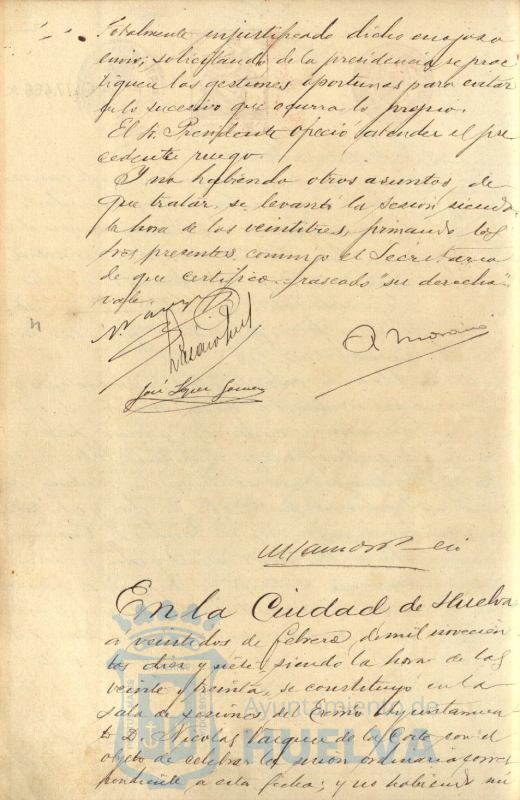 totalmente injustificado dicho enojoso
envio; solicitando de la presidencia se prac
tiquen las gestiones oportunas para evitar
en lo sucesivo que ocurra lo propio.
El Sr. Presidente ofreció atender el pre
cedente ruego.
Y no habiendo otros asuntos, de
que tratar, se levantó la sesión siendo
la hora de las veintitres, firmando los
Sres presentes, conmigo el Secretario
de que certifico=rascado "su derecho"=
vale.
José López Gómez
A. Moreno
En la Ciudad de Huelva
a veintidos de febrero de mil novecien
tos diez y siete, siendo la hora de las
veinte y treinta, se constituyó en la
sala de sesiones del Excmo Ayuntamien
to D. Nicolás Vazquez de la Corte con el
objeto de celebrar la sesión ordinaria corres
pondiente a esta fecha; y no habiendo nu
Ayuntamiento de
HUELVA